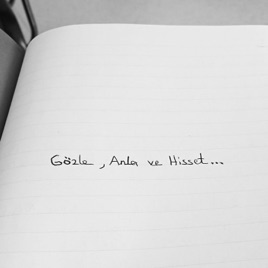 Gözle , Anla ve Hisset...